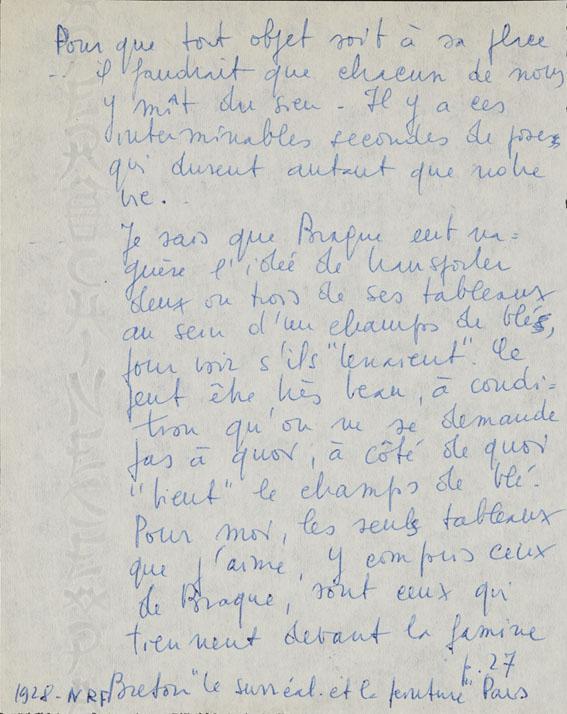 Pour que tout objet soit à sa place
-- il faudrait que chacun de nous
y mît du sien - Il y a ces
interminables secondes de poses
qui durent autant que notre
vie.
Je sais que Braque eut na=
guère l'idée de transporter
deux ou trois de ses tableaux
au sein d'un champs de blés,
pour voir s'ils "tenaient". Ce
peut être très beau, à condi=
tion qu'on ne se demande
pas à quoi, à côté de quoi
"tient" le champs de blé.
Pour moi, les seuls tableaux
que j'aime, y compris ceux
de Braque, sont ceux qui
tiennent devant la famine
p. 27
1928 - NRF Breton "le surréal. et la peinture" Paris